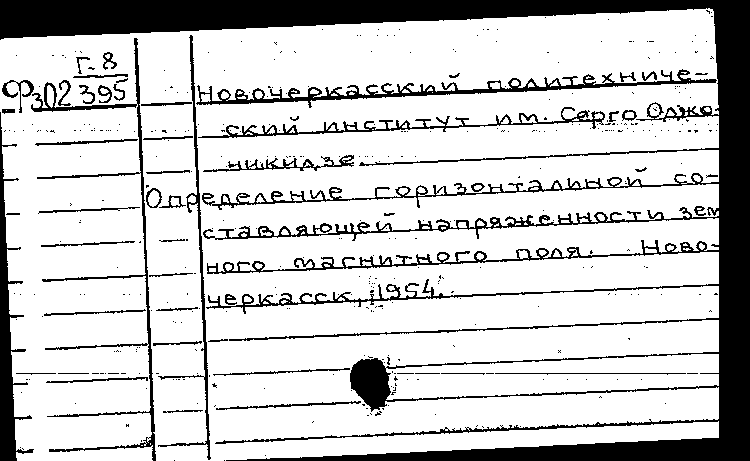 Г-8
Ф302 395
Новочеркасский политехниче-
ский институт им. Серго Оджо-
никидзе.
Определение горизонталиной со-
ставляющей напряженности зем
ного магнитного поля. Ново-
черкасск, 1954.